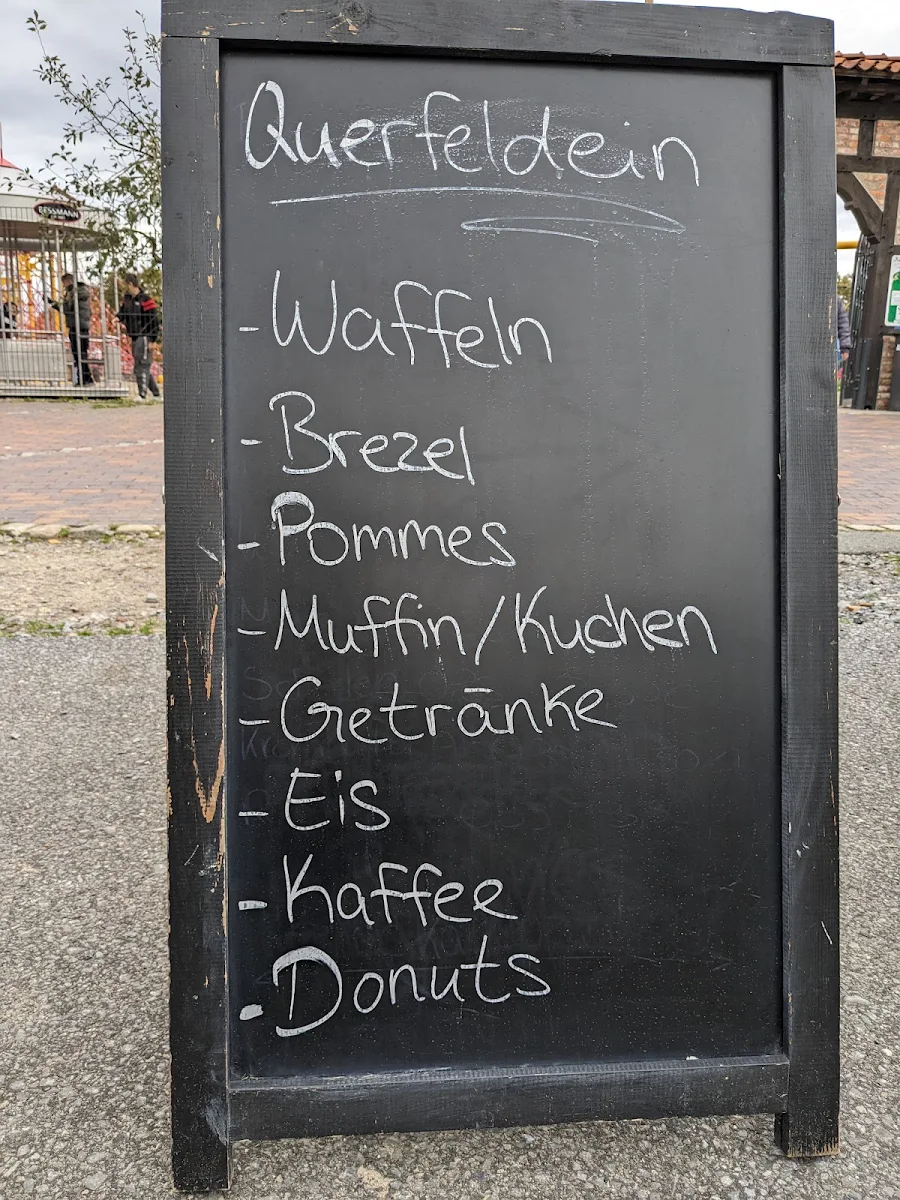 Querfeldein
- Waffeln
- Brezel
- Pommes
- Muffin/Kuchen
- Getränke
- Eis
- Kaffee
- Donuts